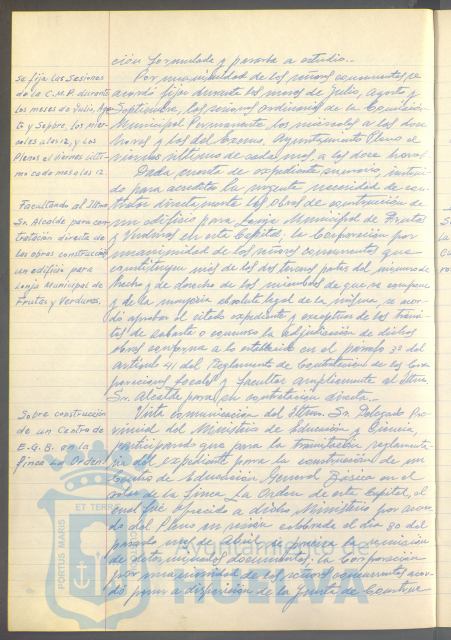 ción formulada y pasarla a estudio.-
Se fija las sesiones
de la C.M.P. durante
los meses de Julio, Ago
to y Sepbre. los miér-
coles a las 12, y los
Plenos el viernes últi-
mo cada mes a las 12.
Por unanimidad de los señores concurrentes se
acordó fijar durante los meses de Julio, Agosto y
Septiembre, las sesiones ordinarias de la Comisión
Municipal Permanente los miércoles a las doce
horas y las del Excmo. Ayuntamiento Pleno el
viernes último de cada mes a las doce horas
Facultando al Iltmo.
Sr. Alcalde para con-
tratación directa de
las obras construcción
un edificio para
Lonja Municipal de
Frutas y Verduras.
Dada cuenta de expediente sumario, instrui-
do para acreditar la urgente necesidad de con-
tratar directamente las obras de construcción de
un edificio para Lonja Municipal de Frutas
y Verduras en esta Capital. la Corporación por
unanimidad de los señores concurrentes que
constituyen más de las dos terceras partes del número de
hecho y de derecho de los miembros de que se compone
y de la mayoría absoluta legal de la misma, se acor-
dó aprobar el citado expediente y exceptuar de los trámi-
tes de subasta o concurso la adjudicación de dichas
obras conforme a lo establecido en el párrafo 3º del
artículo 41 del Reglamento de Contratación de las Cor-
poraciones Locales y facultar ampliamente al Iltmo.
Sr. Alcalde para su contratación directa.-
Sobre construcción
de un Centro de
E.G.B. en la
finca La Orden
Vista comunicación del Iltmo. Sr. Delegado Pro-
vincial del Ministerio de Educación y Ciencia,
participando que para la tramitación reglamenta-
ria del expediente para la construcción de un
Centro de Educación General Básica en el
solar de la finca La Orden de esta Capital, el
cual fué ofrecido a dicho Ministerio por acuer-
do del Pleno en sesión celebrada el día 30 del
pasado mes de abril, se precisa la remisión
de determinados documentos; la Corporación
por unanimidad de los señores concurrentes acor-
dó poner a disposición de la Junta de Construc-
PORTUS MARIS ET TERR
Ayuntamiento de
HUELVA